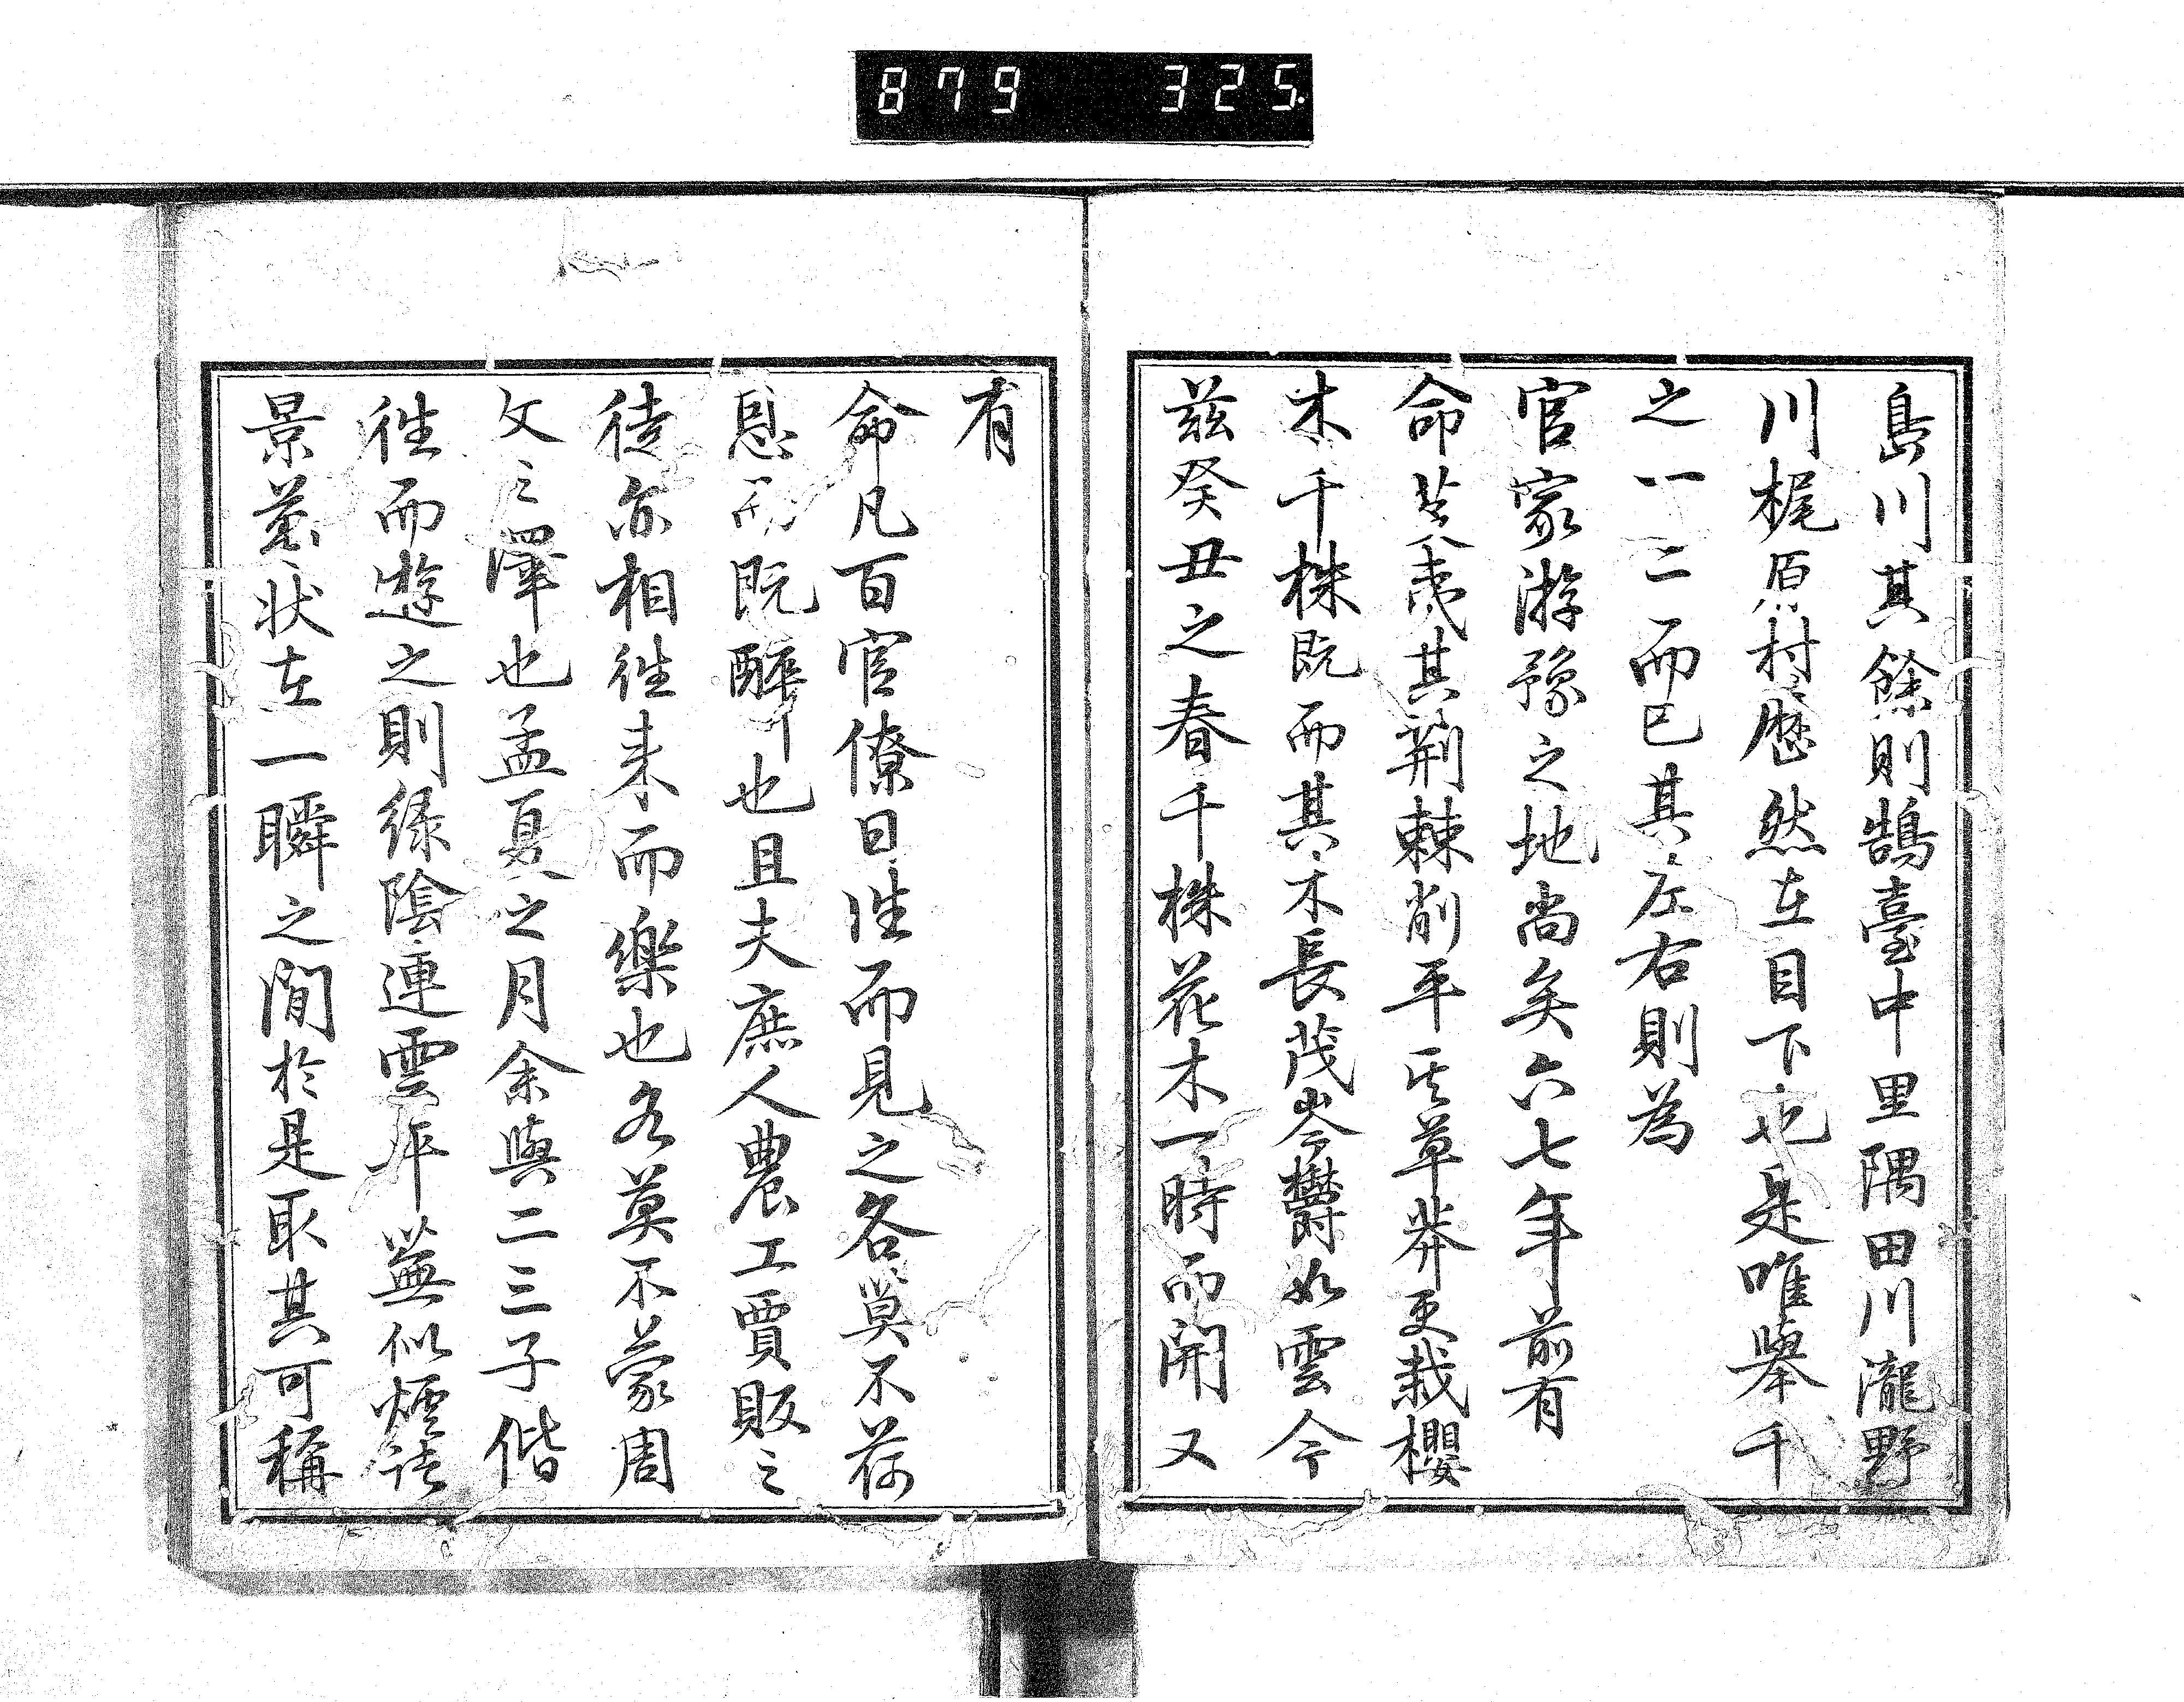 879 325
島川其餘則鵠臺中里隅田川瀧野
川梶原村歷然在目下也是唯舉千
之一二而已其左右則為
官家游豫之地尚矣六七年前有
命芟夷其荆棘削平其草莽更栽櫻
木千株既而其木長茂岑欝如雲今
茲癸丑之春千株花木一時而開又
有
命凡百官僚日往而見之各莫不荷
恩而既醉也且夫庶人農工賈販之
徒亦相往来而樂也各莫不蒙周
文之澤也孟夏之月余與二三子偕
往而遊之則緑陰連雲平蕪似煙
景蓋状在一瞬之間於是取其可稱